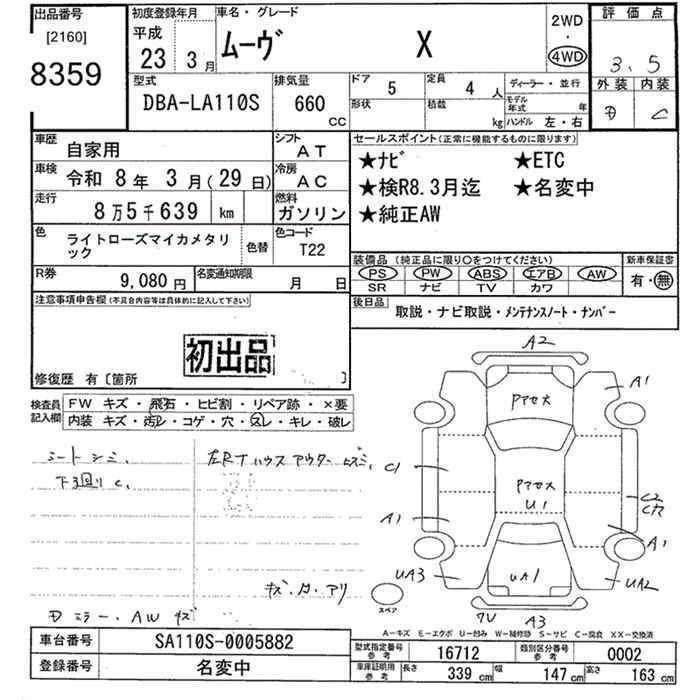 出品番号 初度登録年月 車名・グレード 2WD 評価点
[2160] 平成 ・
8359 23 3月 ムーヴ X 4WD 3.5
型式 排気量 ドア 5 定員 4人 ディーラー・並行 外装 内装
DBA-LA110S 660 CC 形状 積載 kg モデル年式 年 C
ハンドル 左・右
車歴 自家用 シフト AT セールスポイント(正常に機能するものに限ります)
車検 令和 8年 3月(29日) 冷房 AC ★ナビ ★ETC
走行 8万5千639 km 燃料 ガソリン ★検R8.3月迄 ★名変中
★純正AW
色 ライトローズマイカメタリック 色替 色コード T22
装備品(純正品に限り○をつけてください) 新車保証書
R券 9,080円 名変通知期限 月 日 PS PW ABS エアB AW 有・無
SR ナビ TV カワ
注意事項申告欄(不具合内容等は具体的に記入して下さい) 後日品 取説・ナビ取説・メンテナンスノート・ナンバー
初出品
修復歴 有〔箇所 〕
検査員記入欄 FW キズ・飛石・ヒビ割・リペア跡・×要
内装 キズ・汚レ・コゲ・穴・スレ・キレ・破レ
A2
A1
Pアセ大
シートシミ、
下回りC、
C1
Pアセ大
U1
C2
A1
A1
UA3 UA1 UA2
キズ・カ・アリ
スペア
ミラー・AWキズ
A3
A-キズ E-エクボ U-凹み W-補修跡 S-サビ C-腐食 XX-交換済
車台番号 SA110S-0005882 型式指定番号 参考 16712 類別区分番号 参考 0002
登録番号 名変中 車庫証明用 参考 長さ 339cm 幅 147cm 高さ 163cm